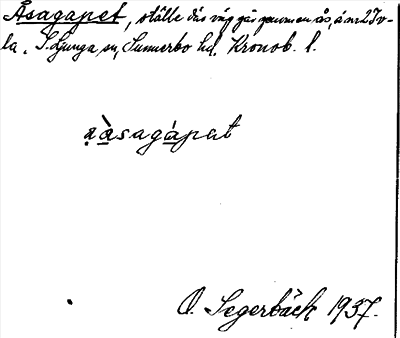 Åsagapet, ställe där väg går genom en ås, å nr 2 Tv-
la. S. Ljunga sn, Sunnerbo hd, Kronob. l.
a̤àsagápat
O. Segerbäck 1937.